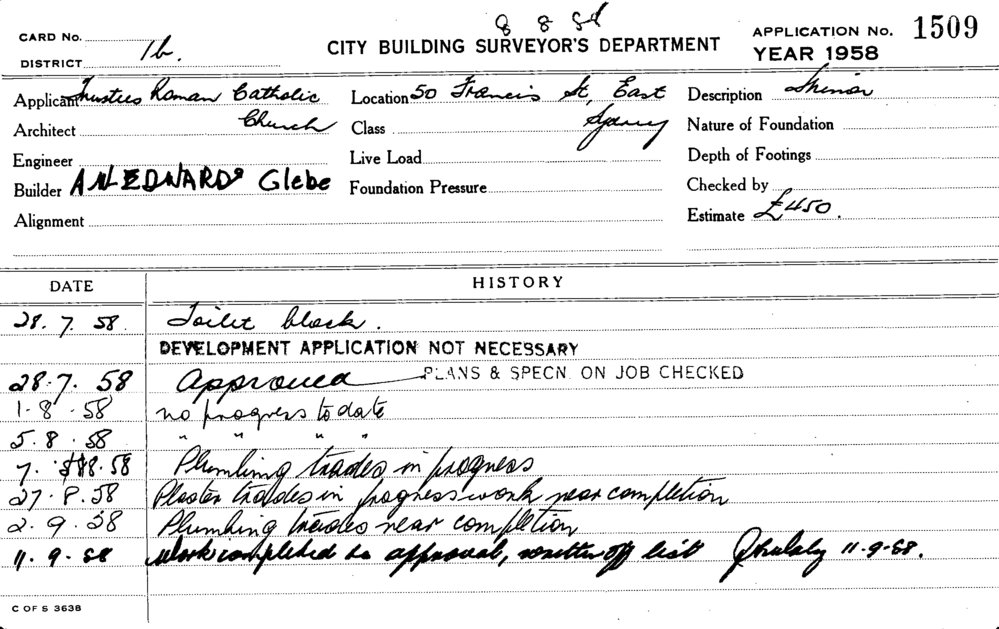 8 8 58
CARD No.
DISTRICT 1b.
CITY BUILDING SURVEYOR'S DEPARTMENT
APPLICATION No. 1509
YEAR 1958
Applicant Trustees Roman Catholic
Church
Location 50 Francis St, East
Sydney
Description Minor
Architect
Class
Nature of Foundation
Engineer
Live Load
Depth of Footings
Builder EDWARDS Glebe
Foundation Pressure
Checked by
Alignment
Estimate £450.
DATE HISTORY
28. 7. 58 Toilet block.
DEVELOPMENT APPLICATION NOT NECESSARY
28.7. 58 Approved PLANS & SPECN. ON JOB CHECKED
1.8.58 no progress to date
5.8.58 " " " "
7. 8.58 Plumbing trades in progress
27.8.58 Plaster trades in progress work near completion
2.9.58 Plumbing trades near completion
11.9.58 Work completed to approval, written off list 11.9.58.
C OF S 3638